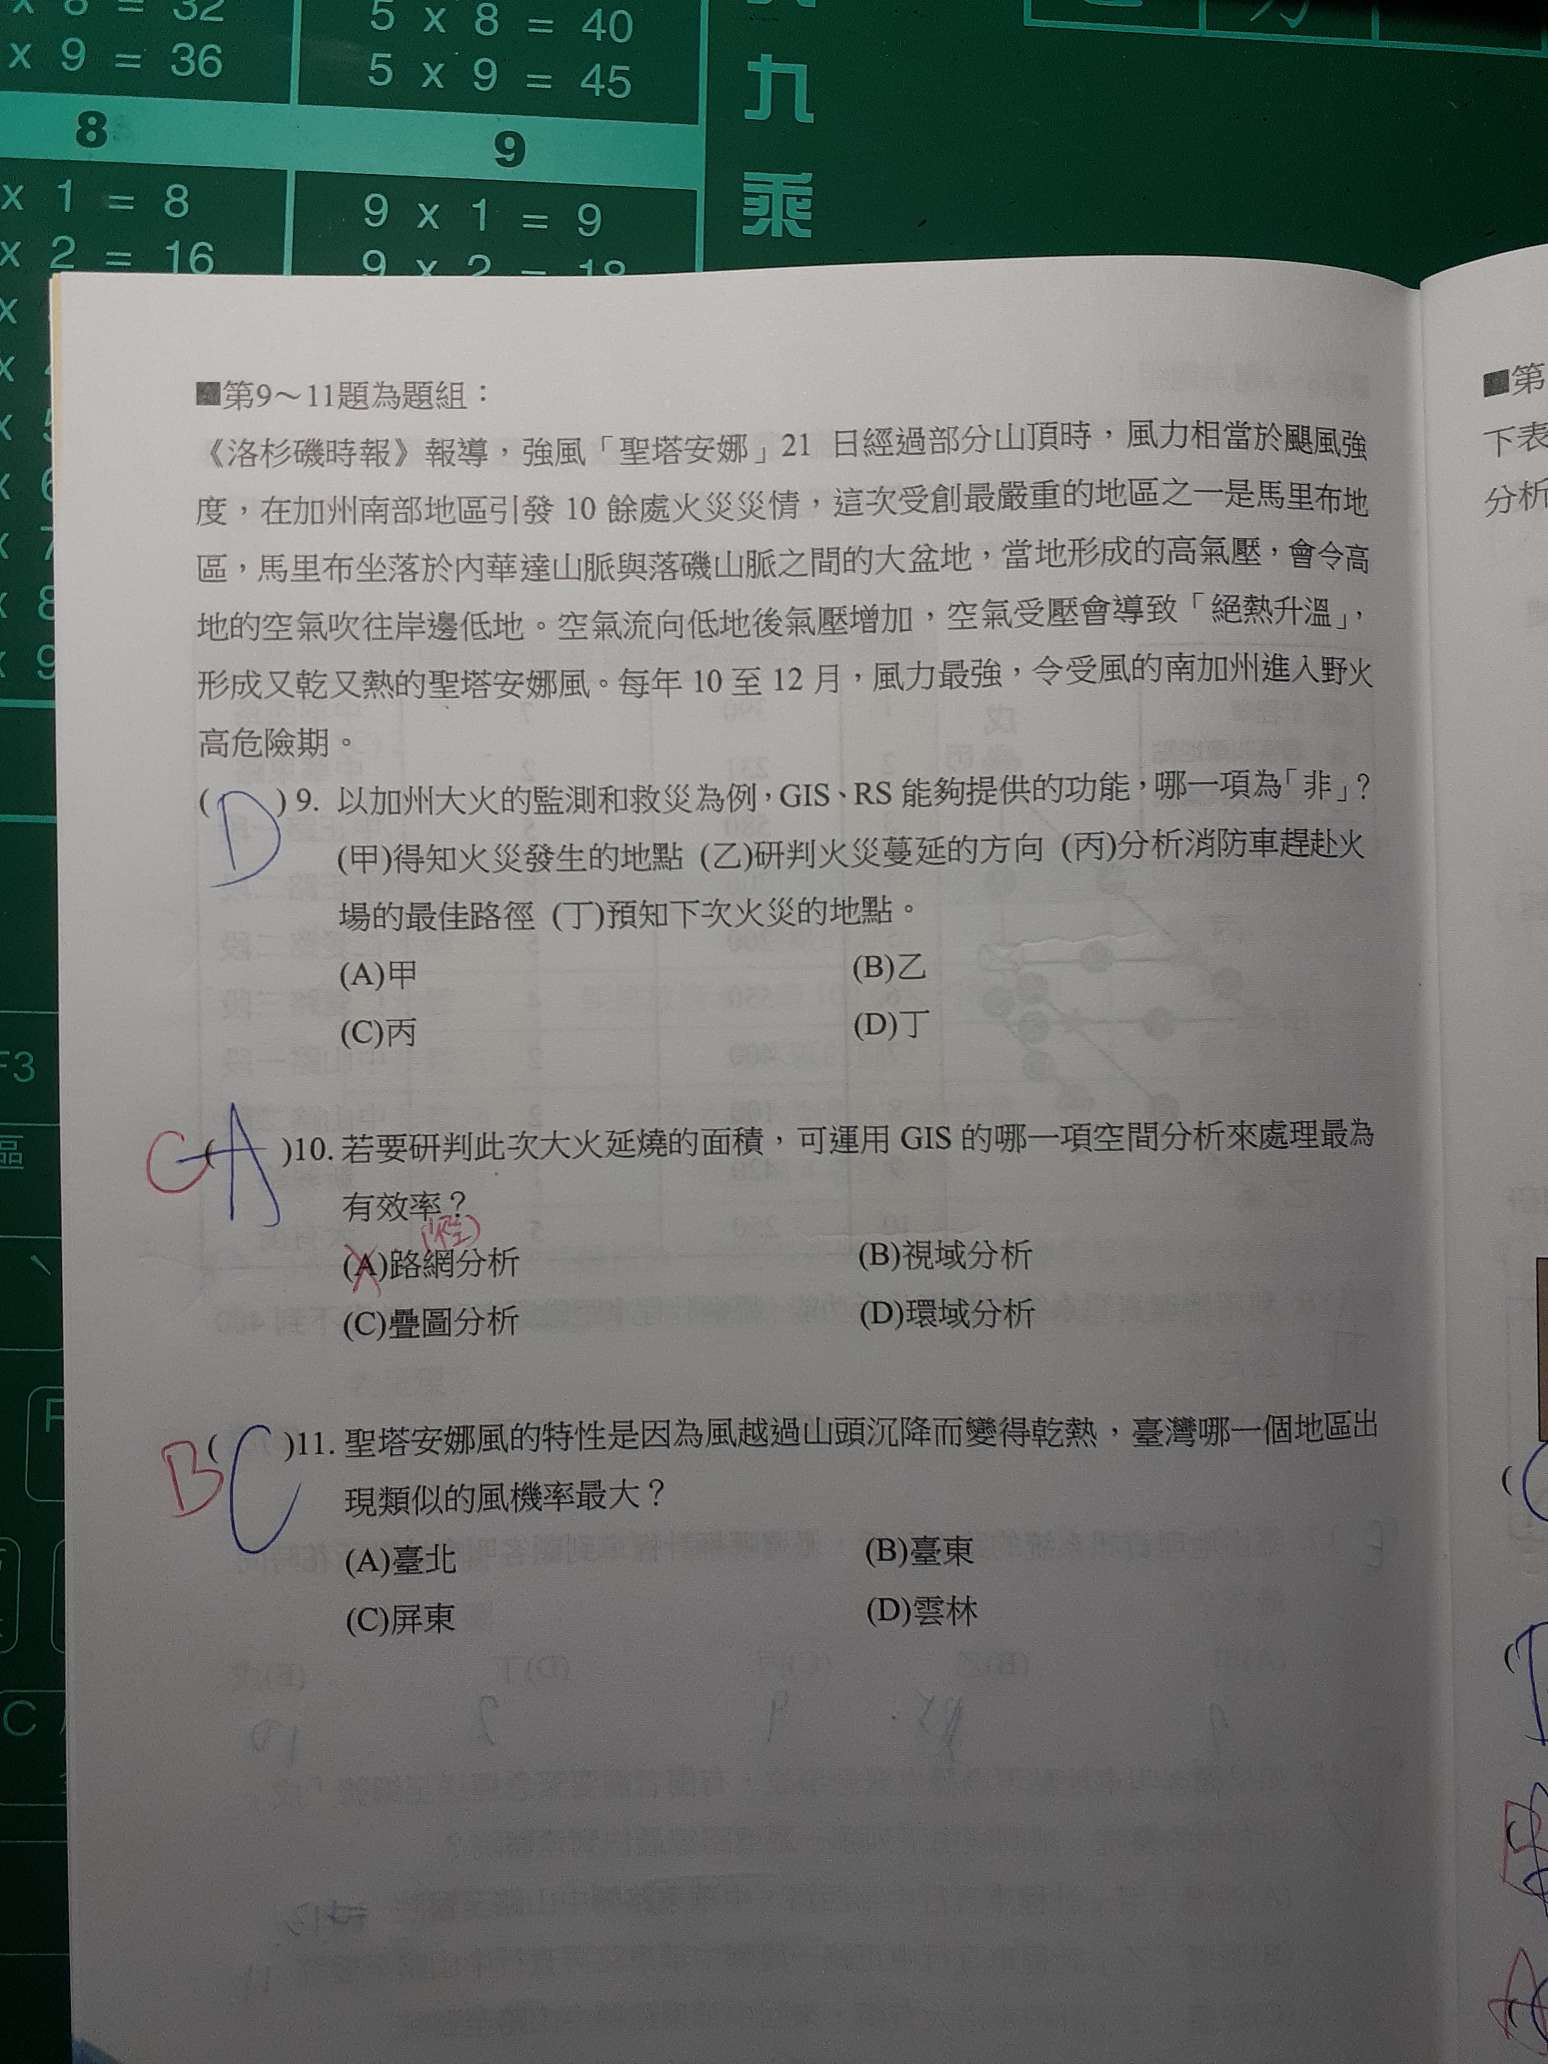 x 8 = 32
x 9 = 36
5 x 8 = 40
5 x 9 = 45
九
乘
8
9
x 1 = 8
x 2 = 16
9 x 1 = 9
9 x 2 = 18
■第9～11題為題組：
《洛杉磯時報》報導，強風「聖塔安娜」21 日經過部分山頂時，風力相當於颶風強
度，在加州南部地區引發 10 餘處火災災情，這次受創最嚴重的地區之一是馬里布地
區，馬里布坐落於內華達山脈與落磯山脈之間的大盆地，當地形成的高氣壓，會令高
地的空氣吹往岸邊低地。空氣流向低地後氣壓增加，空氣受壓會導致「絕熱升溫」，
形成又乾又熱的聖塔安娜風。每年 10 至 12 月，風力最強，令受風的南加州進入野火
高危險期。
( D ) 9. 以加州大火的監測和救災為例，GIS、RS 能夠提供的功能，哪一項為「非」？
(甲)得知火災發生的地點 (乙)研判火災蔓延的方向 (丙)分析消防車趕赴火
場的最佳路徑 (丁)預知下次火災的地點。
(A)甲 (B)乙
(C)丙 (D)丁
C ( A )10. 若要研判此次大火延燒的面積，可運用 GIS 的哪一項空間分析來處理最為
有效率？
(徑)
(A)路網分析 (B)視域分析
(C)疊圖分析 (D)環域分析
B ( C )11. 聖塔安娜風的特性是因為風越過山頭沉降而變得乾熱，臺灣哪一個地區出
現類似的風機率最大？
(A)臺北 (B)臺東
(C)屏東 (D)雲林
■第
下表
分析
F3
區